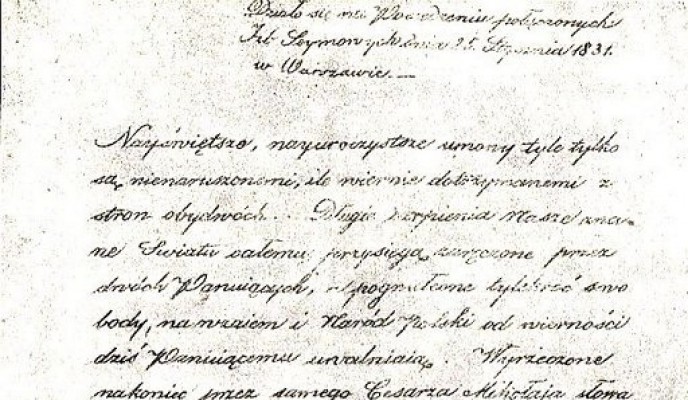 Działo się na Posiedzeniu połączonych
Izb Seymowych dnia 25. Stycznia 1831.
w Warszawie. —
Nayświętsze, nayuroczystsze umowy tyle tylko
są nienaruszonemi, ile wiernie dotrzymanemi z
stron obydwóch. Długie cierpienia Nasze zna-
ne Światu całemu, przysięgą zaręczone przez
dwóch Panuiących, a pogwałcone tylekroć swo
body, nawzaiem i Naród Polski od wierności
dziś Panuiącemu uwalniaią. Wyrzeczone
nakoniec przez samego Cesarza Mikołaja słowa